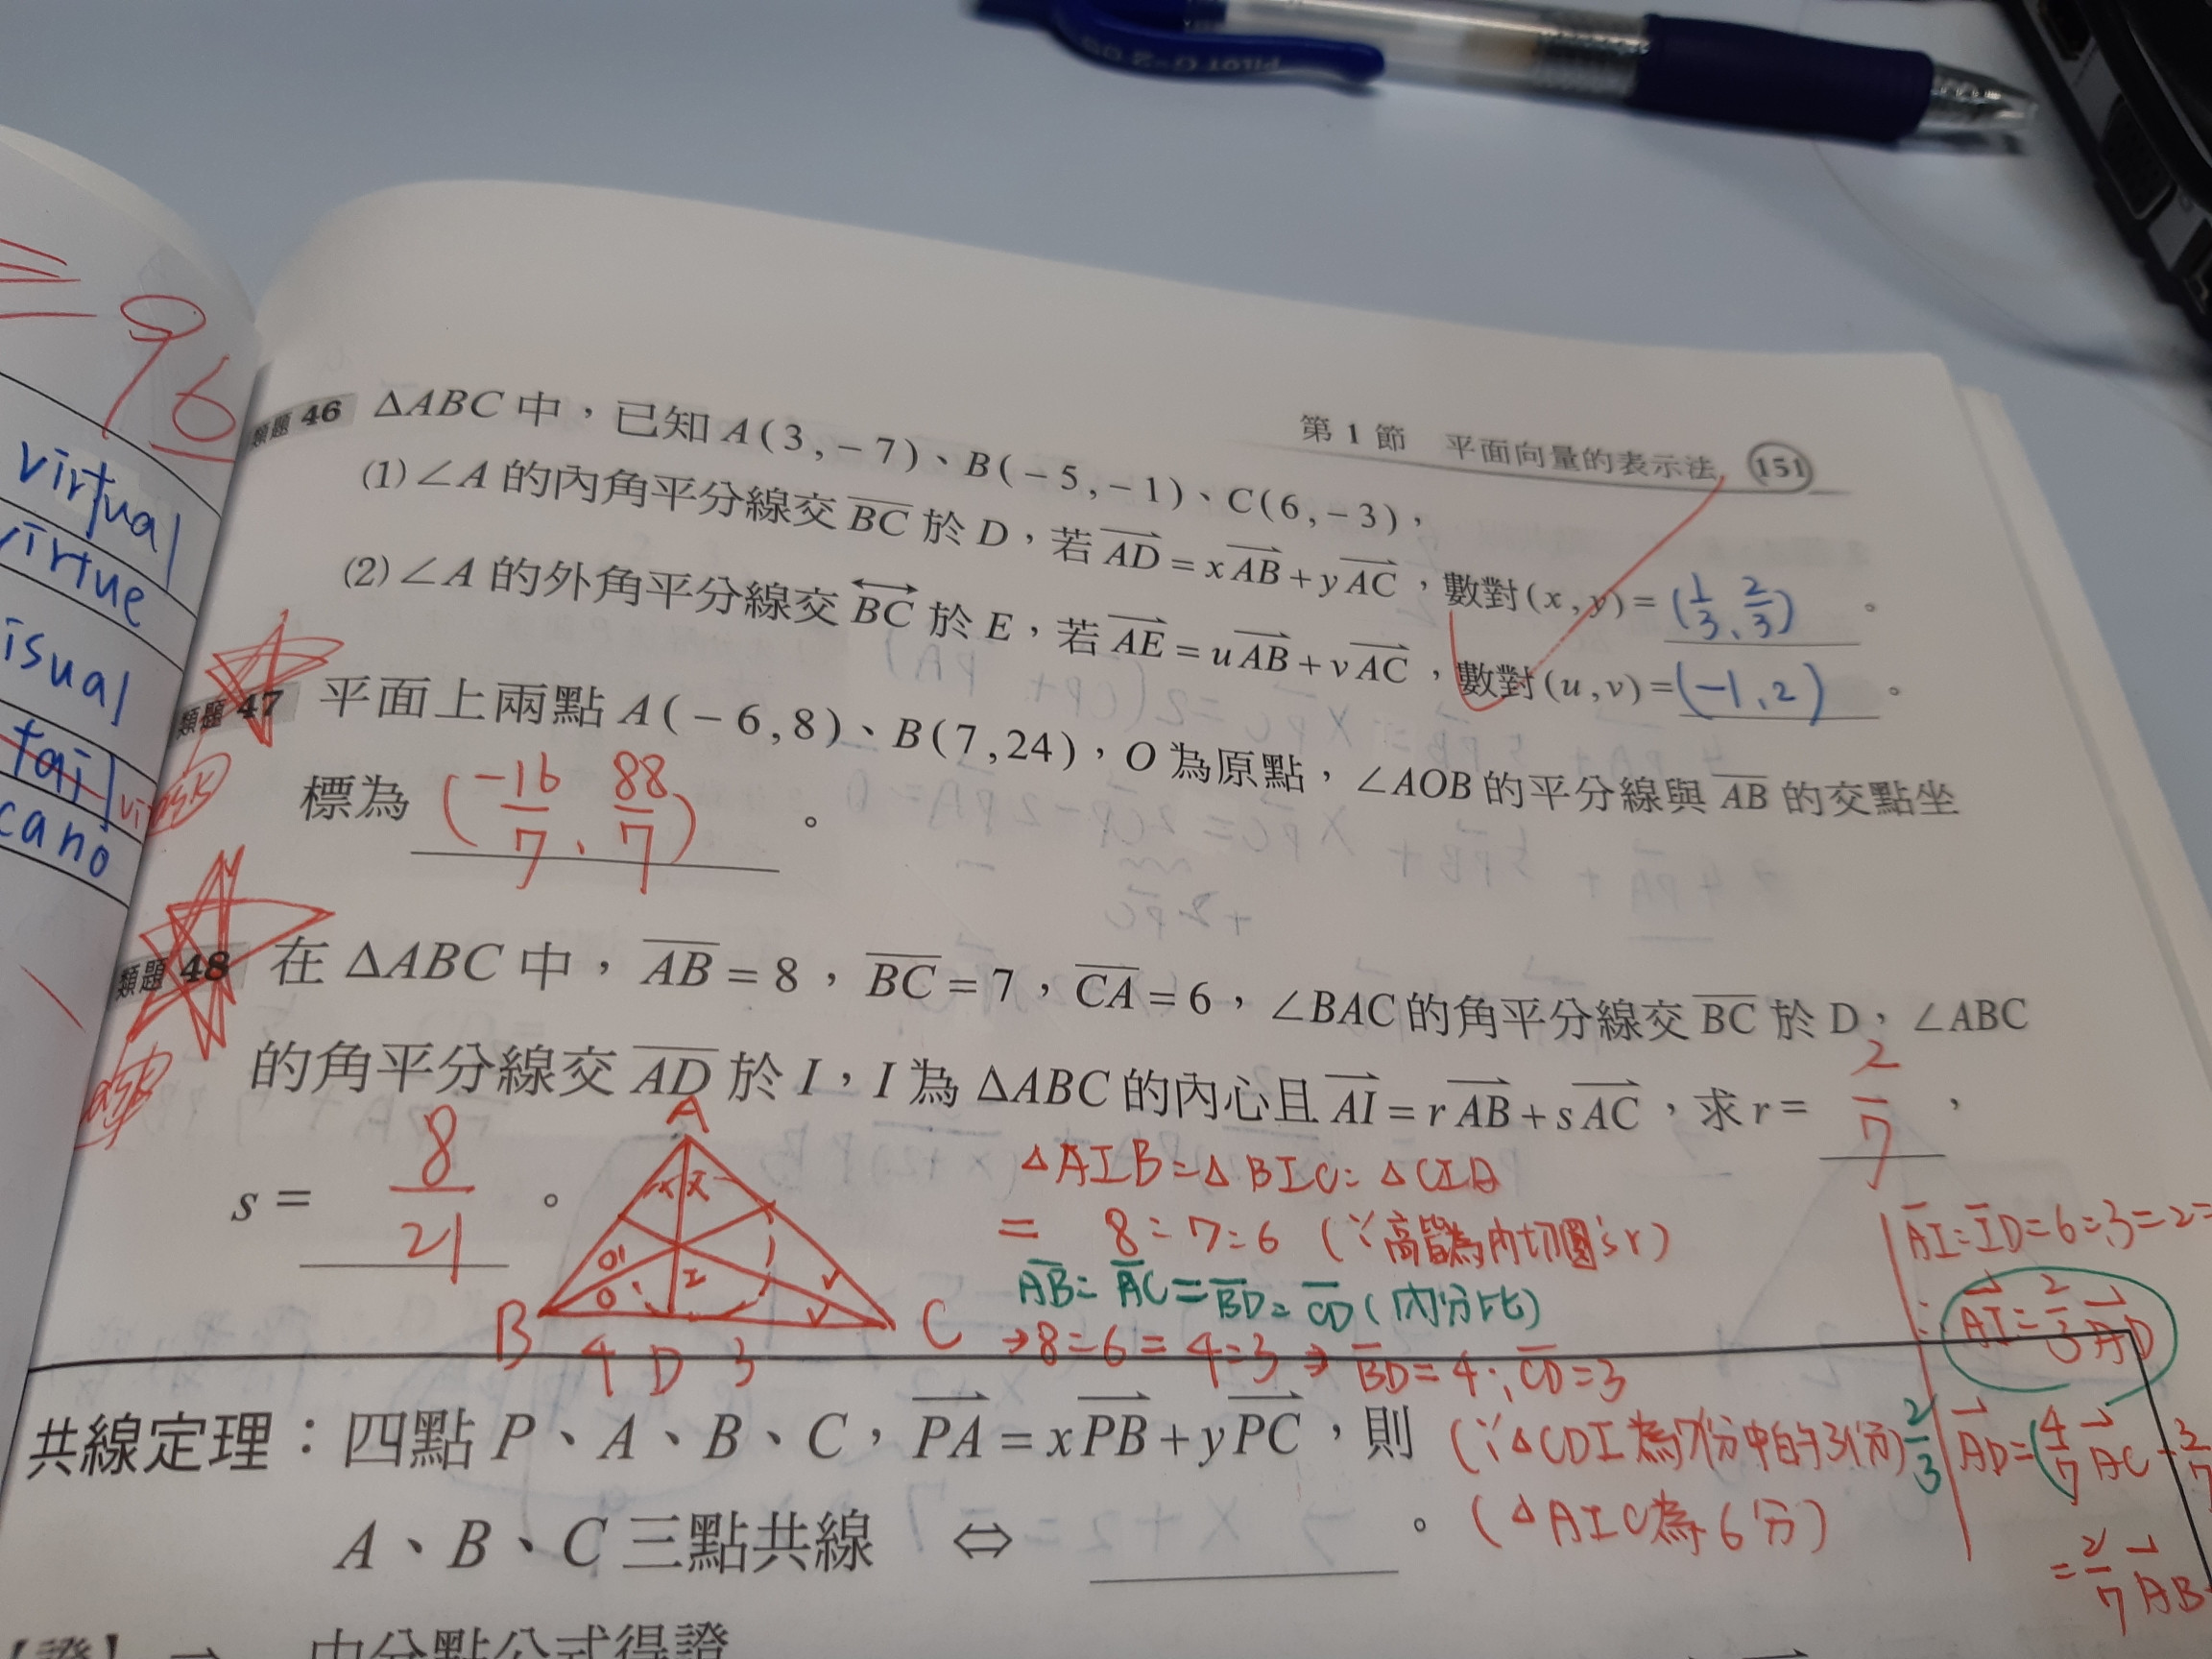 PILOT G-2 05
= 96
virtual
virtue
isual
tail
vi
cano
第 1 節 平面向量的表示法 151
類題 46 ΔABC 中，已知 A(3,-7)、B(-5,-1)、C(6,-3)，
(1) ∠A 的內角平分線交 BC 於 D，若 AD = xAB + yAC，數對(x, y) = (1/3、2/3)。
(2) ∠A 的外角平分線交 BC 於 E，若 AE = uAB + vAC，數對(u, v) = (-1、2)。
類題 47 平面上兩點 A(-6,8)、B(7,24)，O 為原點，∠AOB 的平分線與 AB 的交點坐
標為 (-16/7、88/7)。
ask
類題 48 在 ΔABC 中，AB = 8，BC = 7，CA = 6，∠BAC 的角平分線交 BC 於 D，∠ABC
的角平分線交 AD 於 I，I 為 ΔABC 的內心且 AI = rAB + sAC，求 r = 2/7，
ask
s = 8/21。
A
I
B 4 D 3 C
ΔAIB:ΔBIC:ΔCIA
= 8:7:6 (∵高皆為內切圓之r)
AB:AC=BD:CD(內分比)
→8:6=4:3 → BD=4，CD=3
(∵ΔCDI為7份中的3份)
(ΔAIC為6分)
AI:ID=6:3=2:
∴AI=2/3AD
2/3 AD=(4/7AC+3/7
=2/7AB
共線定理：四點 P、A、B、C，PA = xPB + yPC，則
A、B、C 三點共線 ⇔ 。
【證】⇒ 由分點公式得證